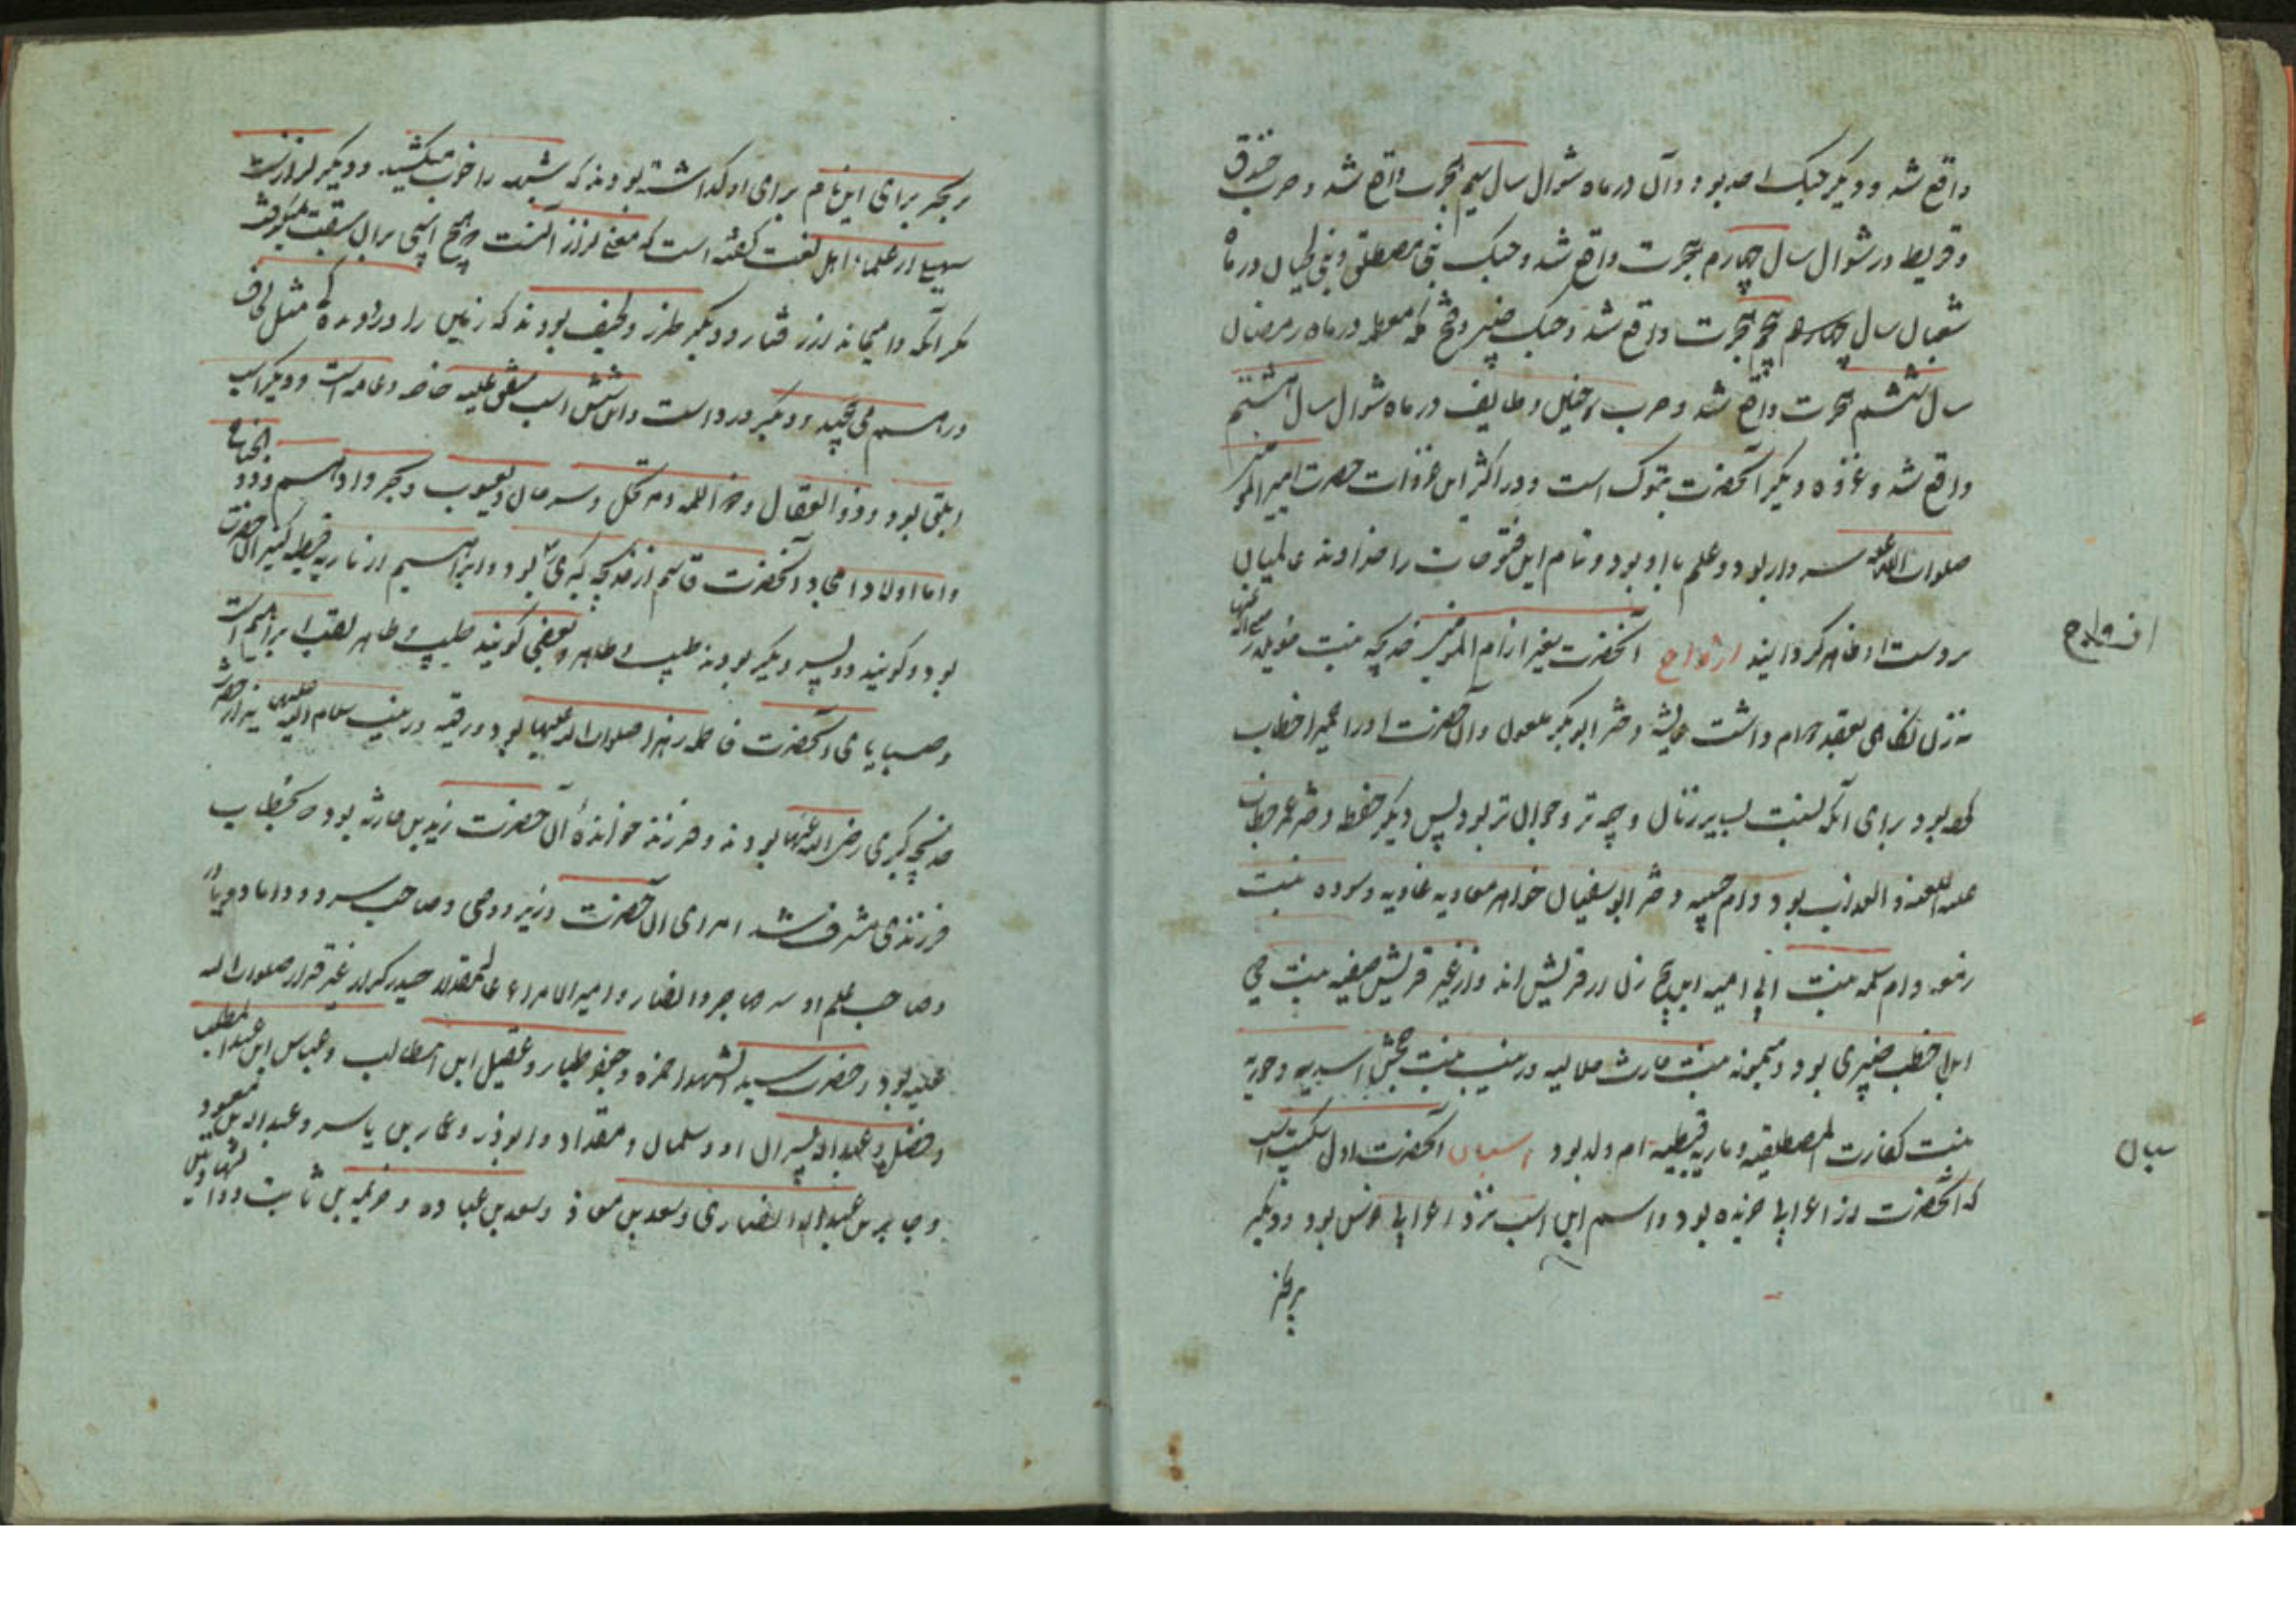 واقع شد و دیگر جنک احد بود و آن در ماه شوال سال سیم هجرت واقع شد و حرب خندق
و قریظ در شوال سال چهارم هجرت واقع شد و جنک بنی مصطلق و بنی لحیان در ماه
شعبان سال پنجم هجرت واقع شد و جنک خیبر و فتح مکه معظمه در ماه رمضان
سال ششم هجرت واقع شد و حرب و طایف در ماه شوال سال هشتم
واقع شد و غزوه دیگر آنحضرت تبوک است و در اکثر این غزوات حضرت امیر المومنین
صلوات الله علیه سردار بود و علم با او بود و تمام این فتوحات را خداوند عالمیان
بر دست او ظاهر کردانید ازواج آنحضرت بغیر از ام المومنین خدیجه بنت خویلد رضی الله عنها
ازواج
نه زن نکاحی بعقد دوام داشت عایشه دختر ابو بکر و آن حضرت او را حمیرا خطاب
کرده بود برای آنکه بسایر زنان و جوان تر بود پس دیگر حفصه دختر عمر خطاب
بود و ام حبیبه دختر ابو سفیان خواهر معاویه و سوده بنت
زمعه و ام سلمه بنت ابی امیه این پنج زن از قریش اند و از غیر قریش صفیه بنت حی
ابن اخطب خیبری بود و میمونه بنت حارث هلالیه و زینب بنت جحش اسدیه و جویریه
بنت المصطلقیه و ماریه قبطیه ام ولد بود اسبان آنحضرت اول سکب است
سبان
که آنحضرت از اعرابی خریده بود و اسم این اسب نزد اعرابی ضرس بود و دیگر
مرتجز
مرتجز برای این نام برای او کذاشته بودند که شیهه را خوب میکشید و دیگر لزاز است
سهیلی از علماء اهل لغت کفته است که معنی لزاز آنست که هیچ اسپی بر آن سبقت نمیکرفت
مکر آنکه و دیگر ظرب و لحیف بودند که زمین را مثل لحاف
در هم می پیچید و دیگر ورد است و این شش اسب متفق علیه خاصه و عامه است و دیگر اسب
ابلق بود و ذو العقال و ذو اللمه و مرتجل و سرحان و یعسوب و بحر و ادهم
و اما اولاد امجاد آنحضرت قاسم از خدیجه کبری بود و ابراهیم از ماریه قبطیه کنیز آن حضرت
بود و کویند دو پسر دیگر بودند طیب و طاهر و بعضی کویند طیب و طاهر لقب ابراهیم است
و صبایای آنحضرت فاطمه زهرا صلوات الله علیها بود و رقیه و زینب سلام الله علیهما نیز از حضرت
خدیجه کبری رضی الله عنها بودند و فرزند خوانده آن حضرت زید بن حارثه بود که بخطاب
فرزندی مشرف شد امرای آن حضرت وزیر و وصی و صاحب سر و داماد
و صاحب علم او مهاجر و انصار و امیر الامراء حیدر کرار غیر فرار صلوات الله
علیه بود و حضرت سید الشهدا حمزه و جعفر طیار و عقیل ابن ابیطالب و عباس ابن عبد المطلب
و فضل و عبد الله پسران او و سلمان و مقداد و ابوذر و عمار بن یاسر و عبد الله بن مسعود
و جابر بن عبد الله انصاری و سعد بن معاذ و سعد بن عباده و خزیمه بن ثابت